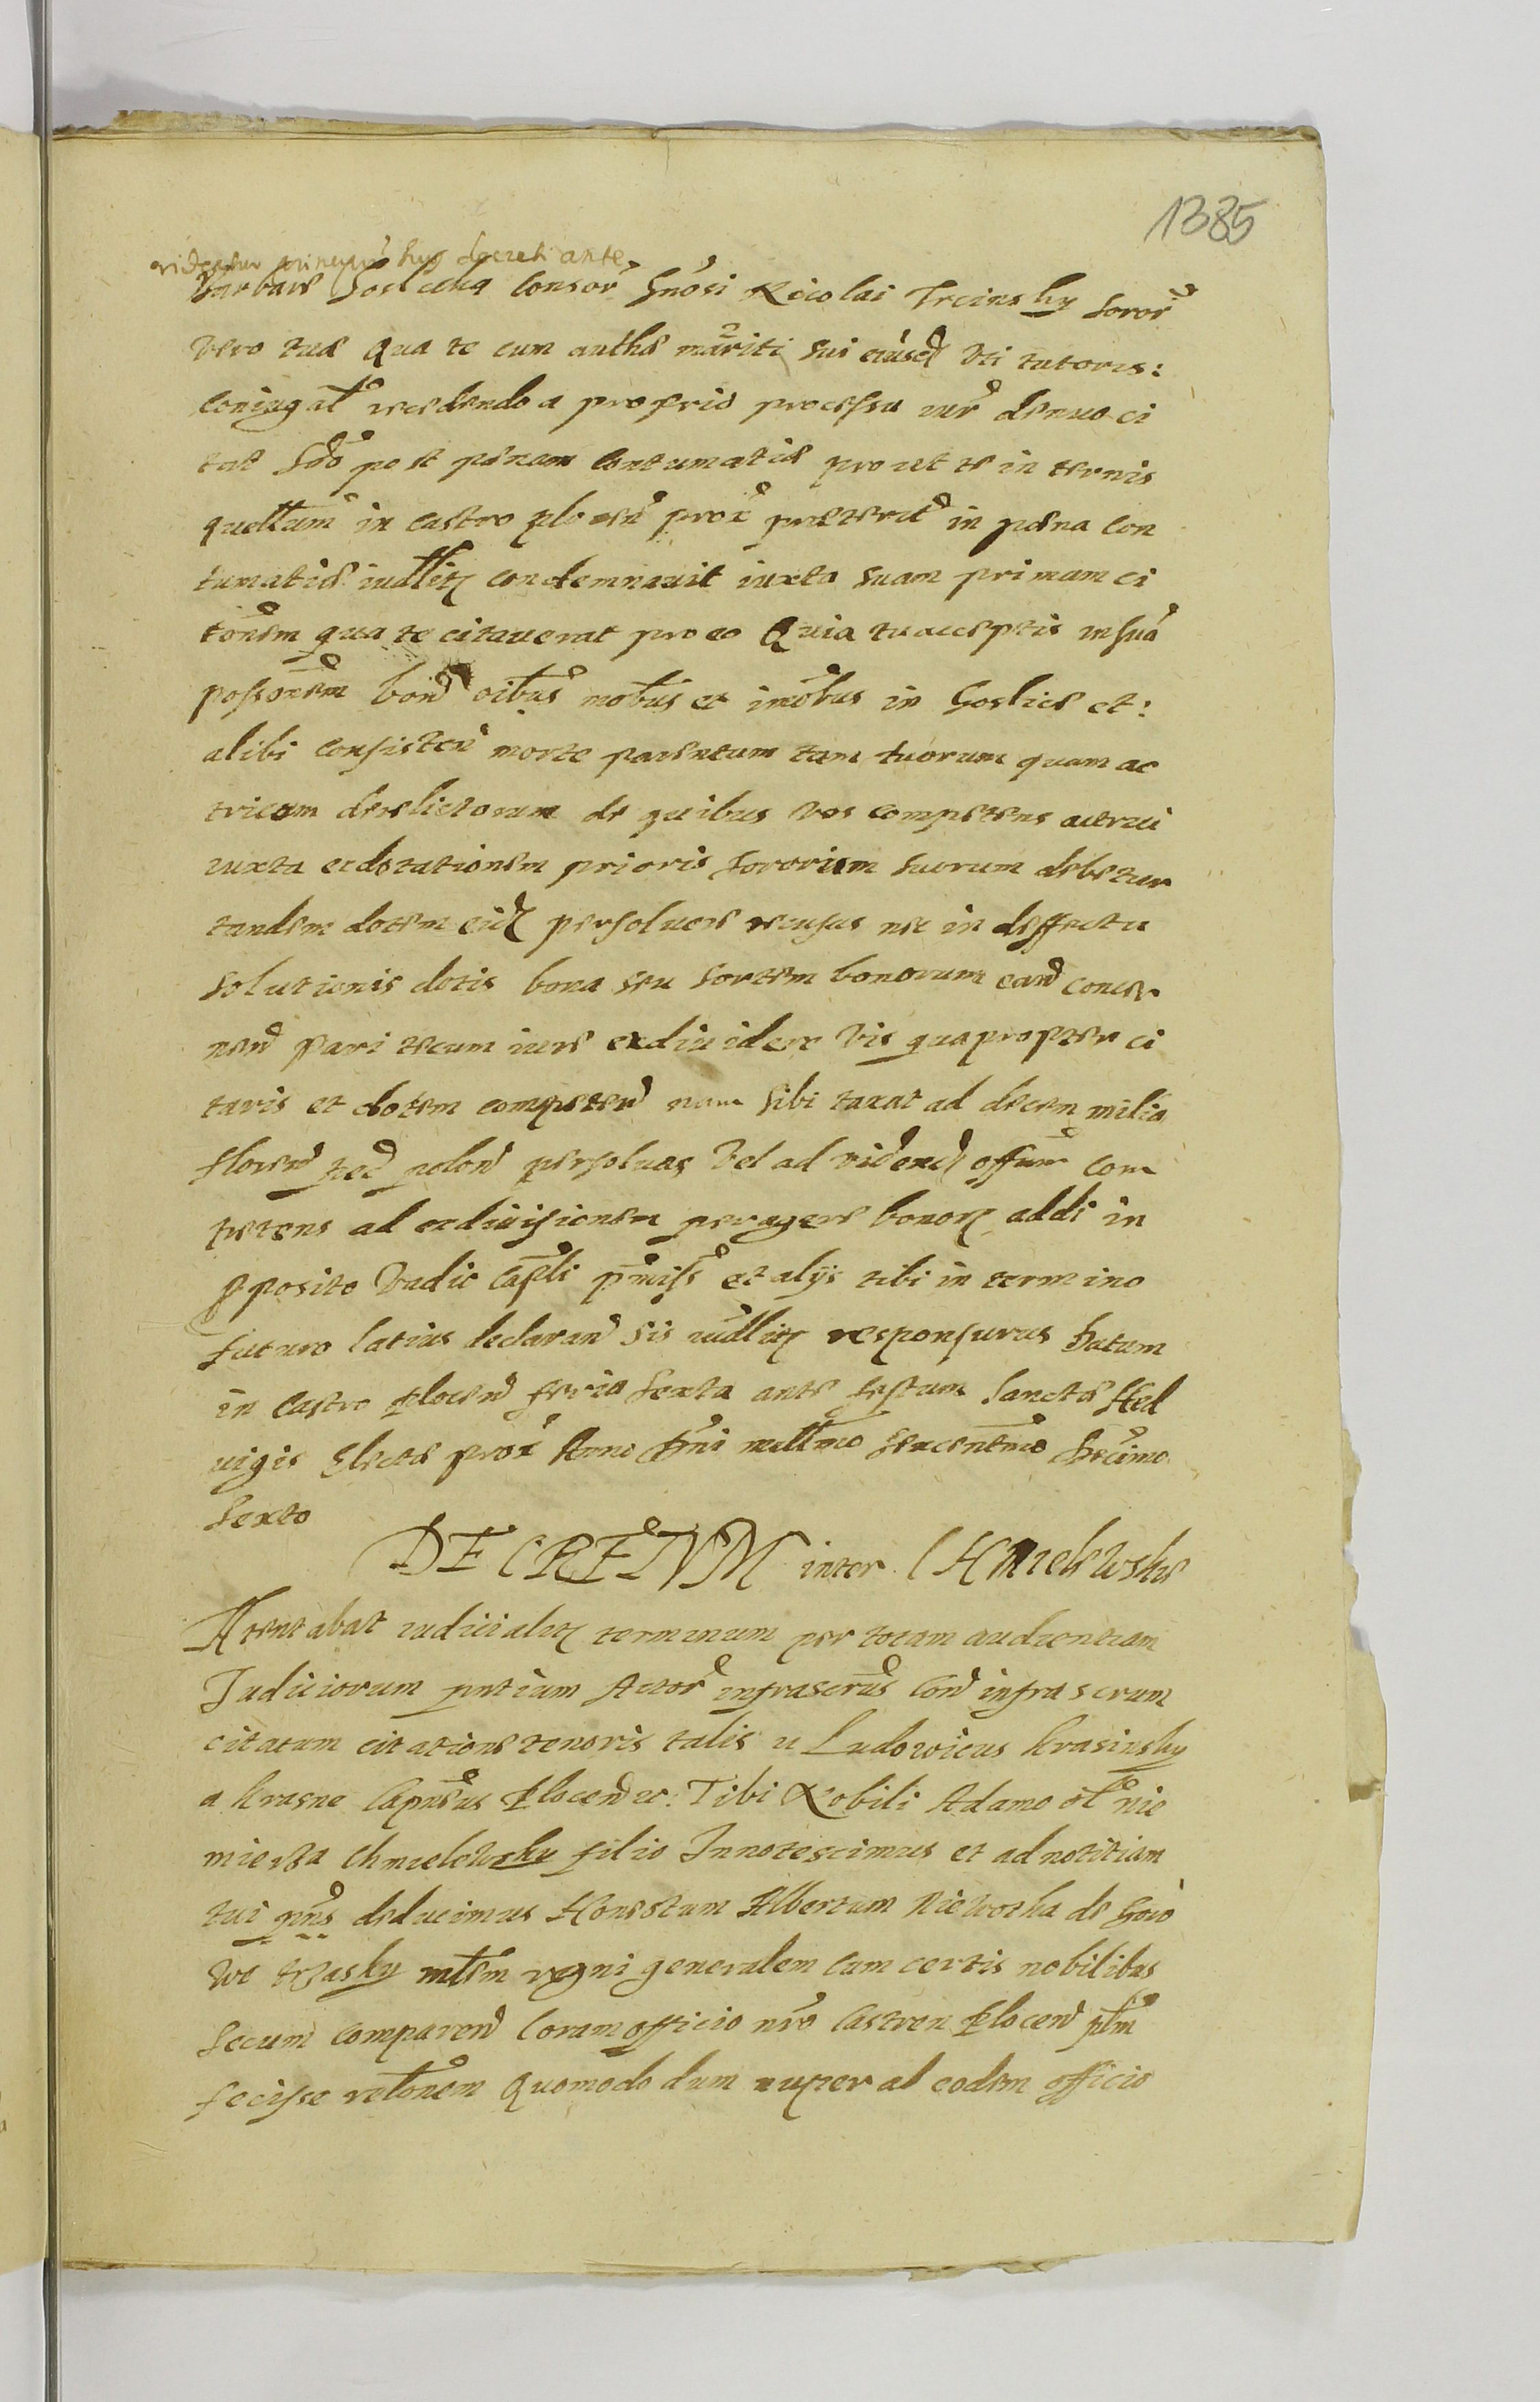 1385
videatur principiu huius decreti ante
Barbare Goslicka Consor Gnosi Nicolai Trcinsky soror
vero tue Qua te cum autha mariti sui eiusd vti tutoris:
Coniugal recedendo a proprio processu ver denuo ci
tat Scdo post penam Contumatie prout te in termis
querellarum in castro plocen prox preterit in pena Con
tumatie iudlitz condemnauit iuxta suam primam ci
tonem qua te citauerat pro eo Quia tu acceptis in sua
possonem bon oibus mobus et imobus in Goslice et:
alibi consisten morte parentum tam tuorum quam ac
tricum derelictorum de quibus dos competens actrici
iuxta exdotationem prioris sororum suorum debetur
tandem dotem eid persoluere recusas nec in deffectu
solutionis dotis bona seu sortem bonorum eand concer
nen pari tecum iure exdiuidere vis quapropter ci
taris et dotem competen nam sibi taxat ad decem milia
floren ped polon persoluas Vel ad vidend offium com
petens ad exdiuisionem peragere bonorz addi in
pposito vadio Capli pmiss et alijs tibi in termino
futuro latius declaran sis iudlitz responsurus Datum
in Castro Plocen feria sexta ante festum Sancte Hed
uigis Electe prox Anno Dni millmo sexcentmo Decimo
Sexto
DECRETVM inter CHmielewskie
Atentabat iudicialitz terminum per totam audientiam
Judiciorum pntium Actor infrascrus Con infrascrum
citatum citatione tenoris talis u Ludowicus Krasinsky
a Krasne Capneus Plocen etc: Tibi Nobili Adamo ol Nie
mierza Chmielewsky filio Innotescimus et ad notitiam
tui pns deducimus Honestum Albertum Niewozka de Goro
wo trzasky mlem regni generalem Cum certis nobilibus
Secum Comparen Coram officio nro Castren Plocen plm
fecisse relonem Quomodo dum nuper ab eodem officio